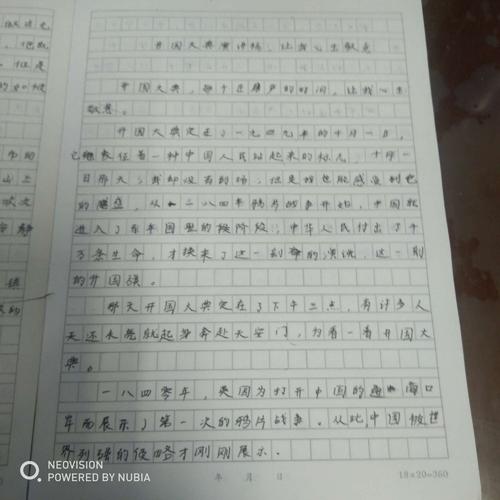 开国大典演讲稿，让我心生敬意
开国大典，每个庄严的时间，让我心生
敬意。
开国大典定在了一九四九年的十月一日，
它象征着一种中国人民站起来的标志，十月一
日那天，我却没有到场，但是我也能感受到他
的，从一八四零年鸦片战争开始，中国就
进入了百年国的阶段，中华人民付出了千
万条生命，才换来了这一刻的演说，这一刻
的开国强。
那天开国大典定在了下午三点，有许多人
天还未亮就起身奔赴天安门，为看一看开国大
典。
一八四零年，英国为打开中国的海口
岸而展示了第一次的鸦片战争。从此中国被世
界列强的侵略才刚刚展示。
年 月 日
18×20=360
NEOVISION
POWERED BY NUBIA